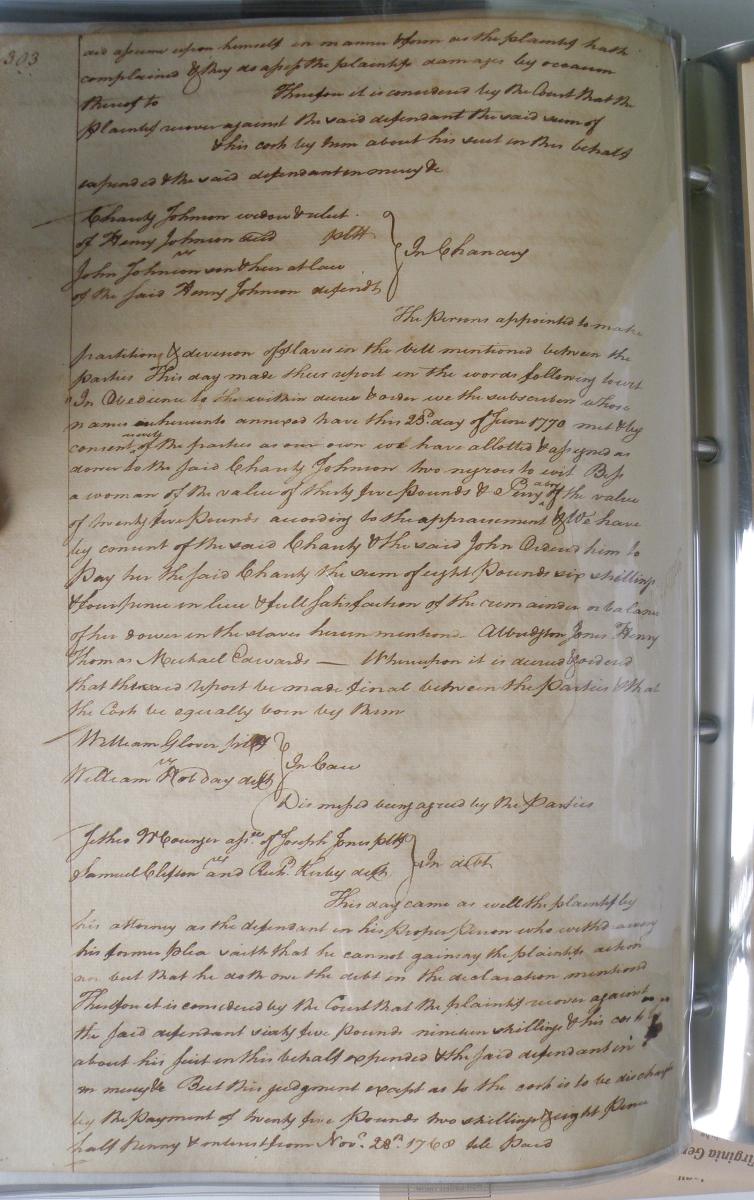 303
did assume upon himself in manner & form as the plaintif hath
complained & they do assess the plaintifs damages by occasion
thereof to Therefore it is considered by the Court that the
plaintif recover against the said defendant the said sum of
& his costs by him about his suit in this behalf
expended & the said defendant in mercy &c
Charity Johnson widow & relict
of Henry Johnson decd pltt
vs
John Johnson son & heir at law
of the said Henry Johnson defendt
In Chancery
The Persons appointed to make
partition & devision of slaves in the bill mentioned between the
parties This day made their report in the words following to wit
"In Obedience to the within decree & order we the subscribers whose
names are hereunto annexed have this 25th day of June 1770 met & by
consent of the parties as our own we have allotted & assigned as
dower to the said Charity Johnson two negroes to wit Bess
a woman of the value of thirty five Pounds & Perry a boy of the value
of twenty five Pounds according to the appraisement & We have
by consent of the said Charity & the said John Ordered him to
Pay her the said Charity the sum of eight Pounds six shillings
& four pence in lieu & full satisfaction of the remainder or balance
of her dower in the slaves herein mentiond Albridgton Jones Henry
Thomas Michael Edwards — Whereupon it is decreed & ordered
that the said report be made final between the Parties & that
the Costs be equally born by them
William Glover pltt
vs
William Holoday deft
In Case
Dismissed being agreed by the Parties
Jethro Mounger assee of Joseph Jones pltt
vs
Samuel Clifton and Richd Kirby defts
In debt
This day came as well the plaintif by
his attorney as the defendant in his proper Person who withdrawing
his former plea saith that he cannot gainsay the plaintifs action
nor but that he doth owe the debt in the declaration mentiond
Therefore it is considered by the Court that the plaintif recover against
the said defendant sixty five Pounds nineteen shillings & his costs by
about his suit in this behalf expended & the said defendant in
in mercy &c But this judgment except as to the costs is to be discharg
by the Payment of twenty five Pounds two shillings & eight Pence
half Penny & interest from Novr 28th 1768 till Paid
Virginia Ge